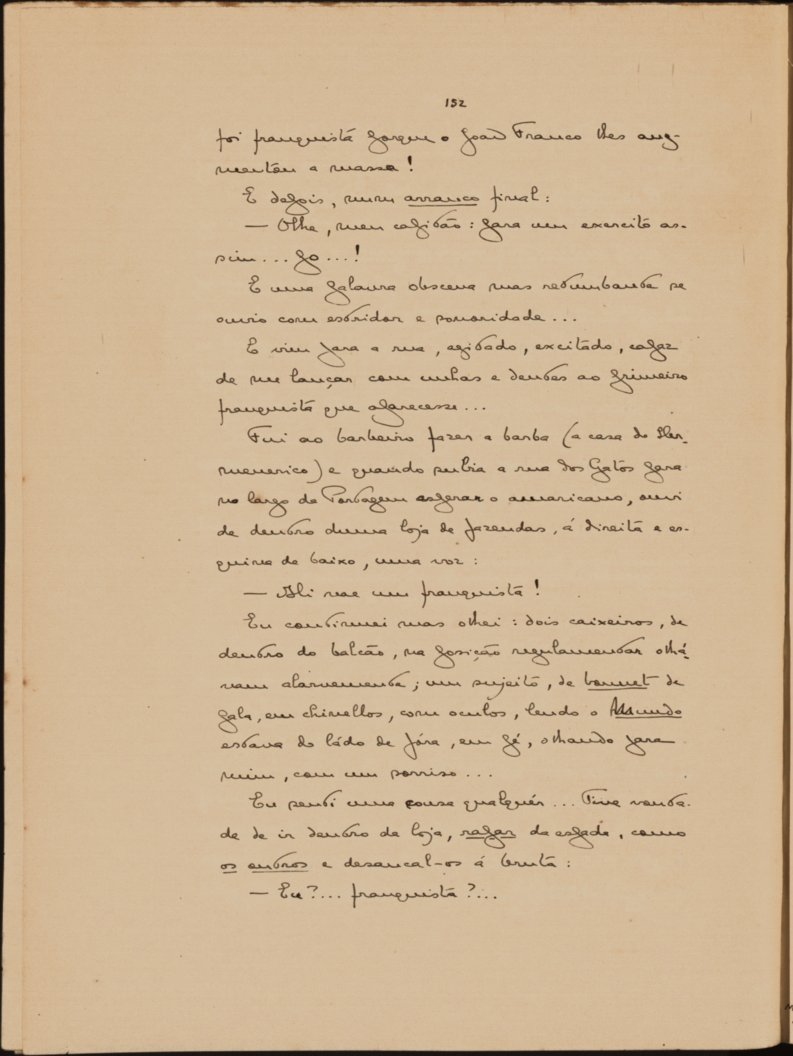 152
foi franquista porque o João Franco lhes aug-
mentou a massa!
E depois, num arranco final:
— Olhe, meu capitão: para um exercito as-
sim... po...!
E uma palavra obscena mas retumbante se
ouvio com estridor e sonoridade...
E vim para a rua, agitado, excitado, capaz
de me lançar com unhas e dentes ao primeiro
franquista que aparecesse...
Fui ao barbeiro fazer a barba (a casa do Her-
menerico) e quando subia a rua dos Gatos para
no largo da Portagem esperar o americano, ouvi
de dentro duma loja de fazendas, á direita e es-
quina de baixo, uma voz:
— Ali vae um franquista!
Eu continuei mas olhei: dois caixeiros, de
dentro do balcão, na posição regulamentar olhá-
vam alarvemente; um sujeito, de bonnet de
pala, em chinellos, com oculos, lendo o Mundo
estava do ládo de fóra, em pé, olhando para
mim, com um sorriso...
Eu senti uma cousa qualquér... Tive vonta-
de de ir dentro da loja, rapar da espada, como
os outros e desancal-os á bruta:
— Eu?... franquista?...